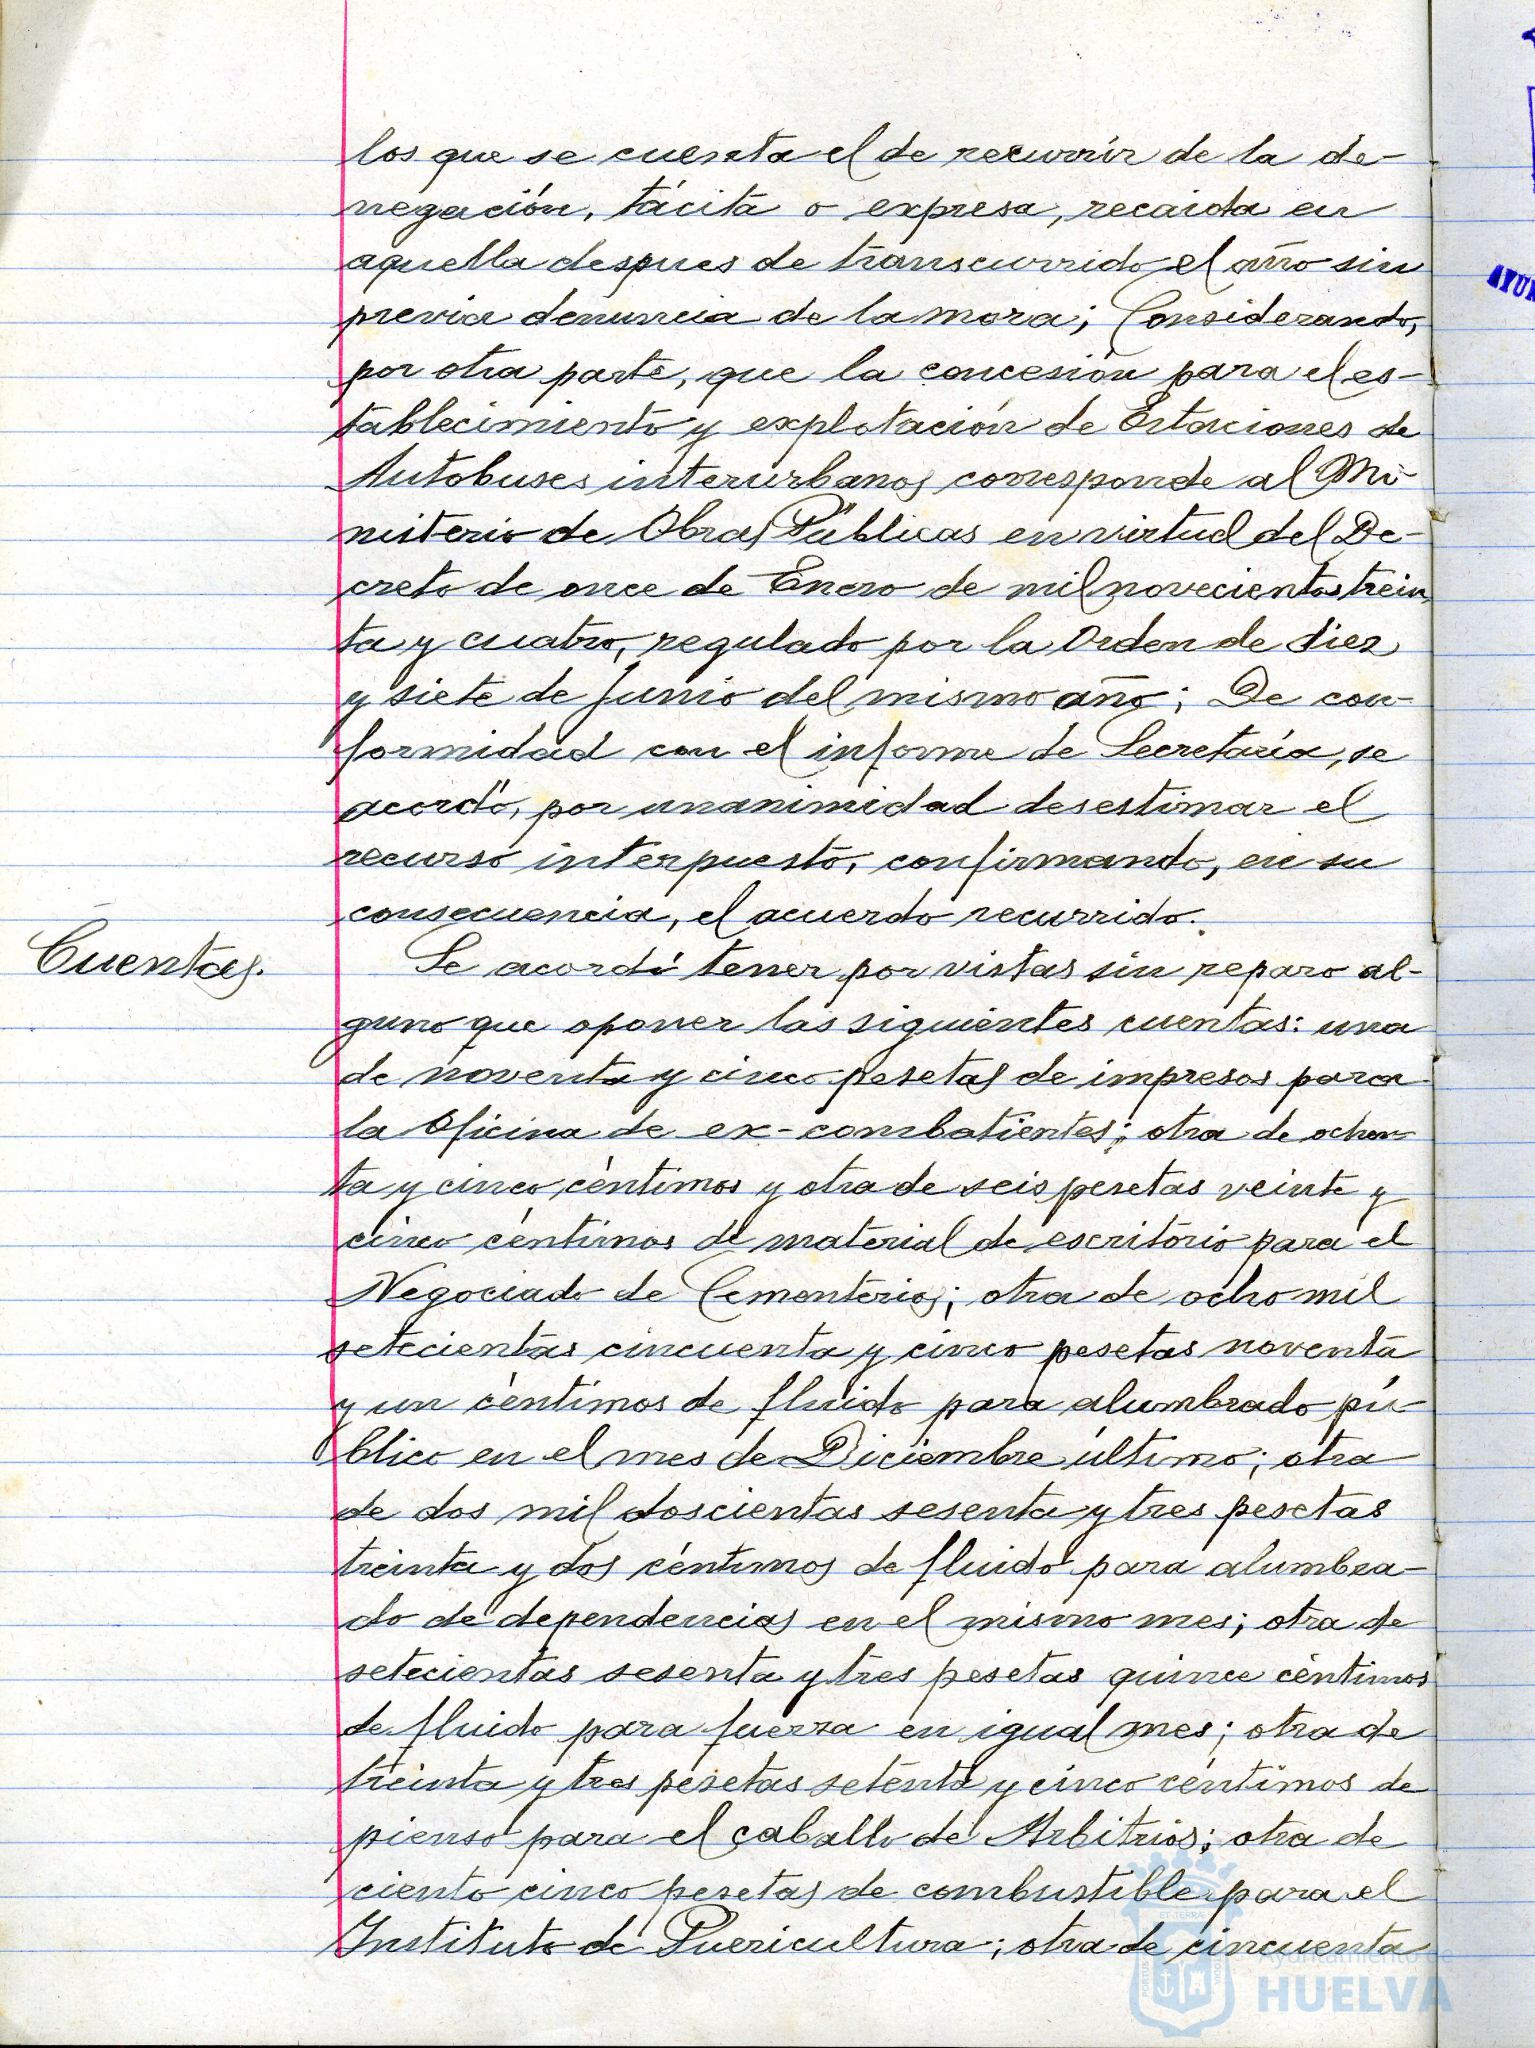 los que se cuenta el de recurrir de la de-
negación, tácita o expresa, recaida en
aquella despues de transcurrido el año sin
previa denuncia de la mora; Considerando,
por otra parte, que la concesión para el es-
tablecimiento y explotación de Estaciones de
Autobuses interurbanos corresponde al Mi-
nisterio de Obras Públicas en virtud del De-
creto de once de Enero de mil novecientos trein
ta y cuatro, regulado por la Orden de diez
y siete de Junio del mismo año; De con-
formidad con el informe de Secretaría, se
acordó, por unanimidad desestimar el
recurso interpuesto, confirmando, en su
consecuencia, el acuerdo recurrido.
Cuentas.
Se acordó tener por vistas sin reparo al-
guno que oponer las siguientes cuentas: una
de noventa y cinco pesetas de impresos para
la Oficina de ex-combatientes; otra de ochen
ta y cinco céntimos y otra de seis pesetas veinte y
cinco céntimos de material de escritorio para el
Negociado de Cementerios; otra de ocho mil
setecientas cincuenta y cinco pesetas noventa
y un céntimos de fluido para alumbrado pú-
blico en el mes de Diciembre último; otra
de dos mil doscientas sesenta y tres pesetas
treinta y dos céntimos de fluido para alumbra-
do de dependencias en el mismo mes; otra de
setecientas sesenta y tres pesetas quince céntimos
de fluido para fuerza en igual mes; otra de
treinta y tres pesetas setenta y cinco céntimos de
pienso para el caballo de Arbitrios; otra de
ciento cinco pesetas de combustible para el
Instituto de Puericultura; otra de cincuenta
Ayuntamiento de
HUELVA